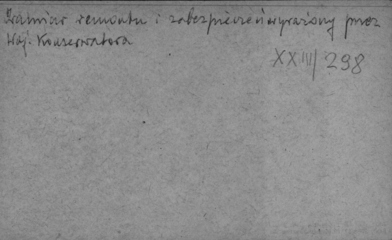 Zamiar remontu i zabezpieczeń wyrażony przez
Woj. Konserwatora
XXIII/298